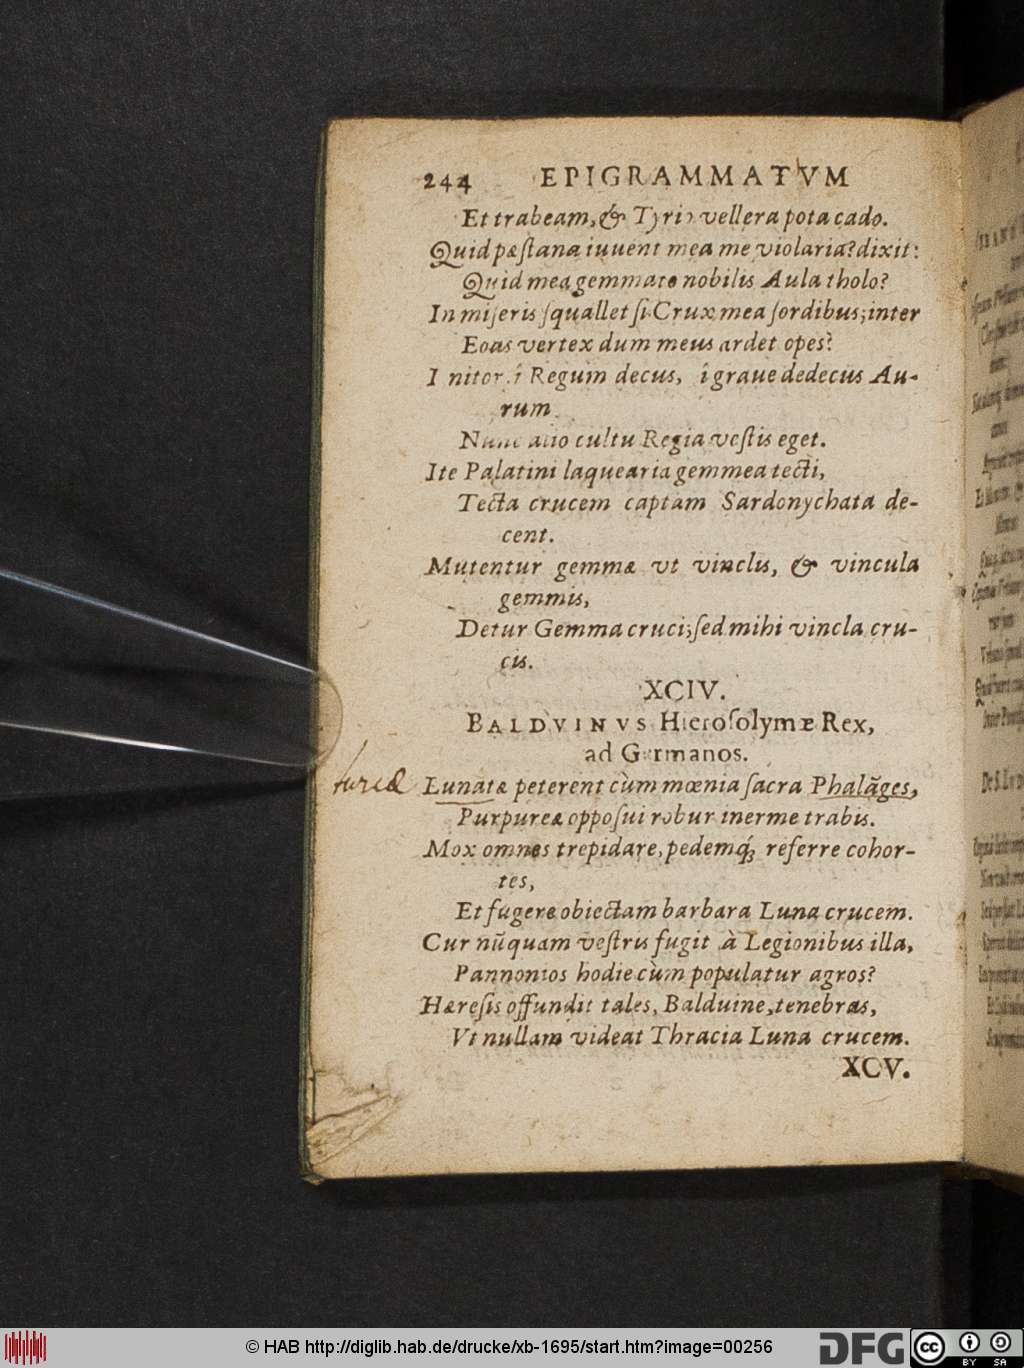 244 EPIGRAMMATVM
Et trabeam, & Tyrio vellera pota cado.
Quid pæſtana iuuent mea me violaria? dixit:
Quid mea gemmato nobilis Aula tholo?
In miſeris ſquallet ſi Crux mea ſordibus; inter
Eoas vertex dum meus ardet opes?
I nitor, i Regum decus, i graue dedecus Au-
rum
Nunc alio cultu Regia veſtis eget.
Ite Palatini laquearia gemmea tecti,
Tecta crucem captam Sardonychata de-
cent.
Mutentur gemmæ vt vinclis, & vincula
gemmis,
Detur Gemma cruci; ſed mihi vincla cru-
cis.
XCIV.
BALDVINVS Hieroſolymæ Rex,
ad Germanos.
turcæ Lunatæ peterent cùm mœnia ſacra Phalãges,
Purpureæ oppoſui robur inerme trabis.
Mox omnes trepidare, pedemq́ꝫ referre cohor-
tes,
Et fugere obiectam barbara Luna crucem.
Cur nũquam veſtris fugit à Legionibus illa,
Pannonios hodie cùm populatur agros?
Hæreſis offundit tales, Balduine, tenebras,
Vt nullam videat Thracia Luna crucem.
XCV.
© HAB http://diglib.hab.de/drucke/xb-1695/start.htm?image=00256
DFG
cc BY SA